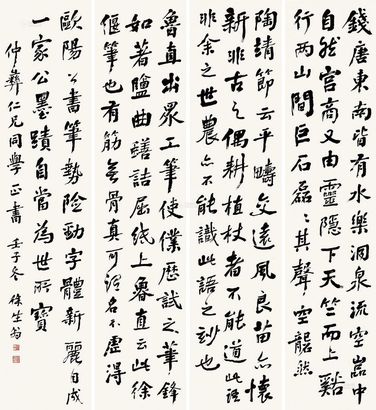 錢唐東南皆有水樂洞泉流空巖中
自然宮商又由靈隱下天竺而上谿
行兩山間巨石磊磊其聲空礱然
陶靖節云平疇交遠風良苗亦懷
新非古之偶耕植杖者不能道此語
非余之世農亦不能識此語之妙也
魯直出眾工筆使僕歷試之筆鋒
如著鹽曲蟮詰屈紙上魯直云此徐
偃筆也有筋無骨真可謂名不虛得
歐陽公書筆勢險勁字體新麗自成
一家公墨蹟自當為世所寶
仲彝仁兄同學正書 壬子冬 徐生翁